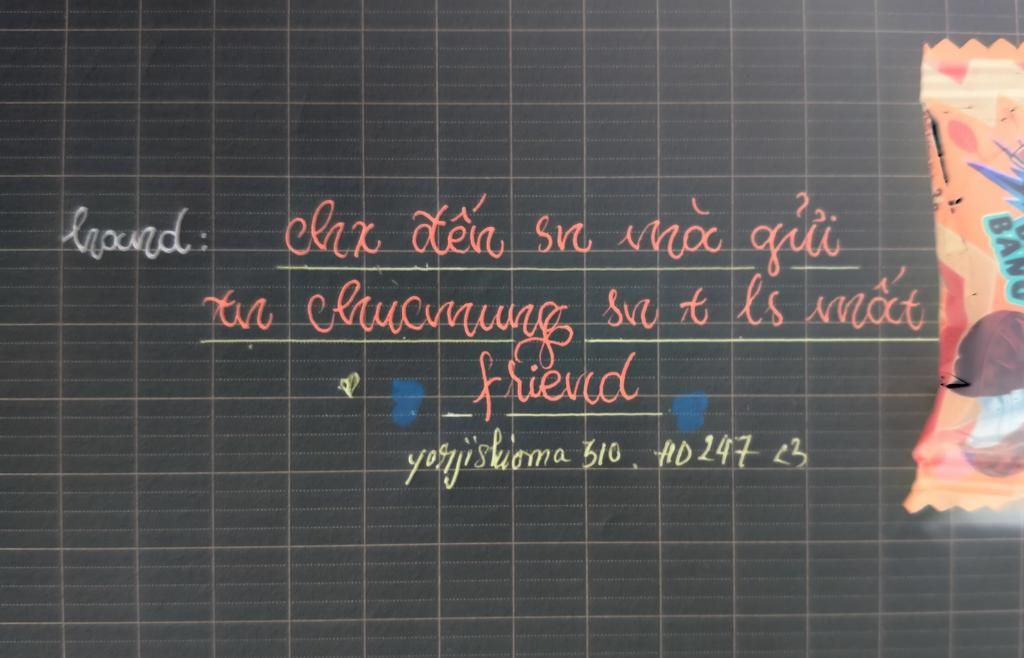 hand: chx đến sn mà gửi
tn chucmung sn t ls mất
friend
yorjiskioma 310. HD 247 <3
BANG